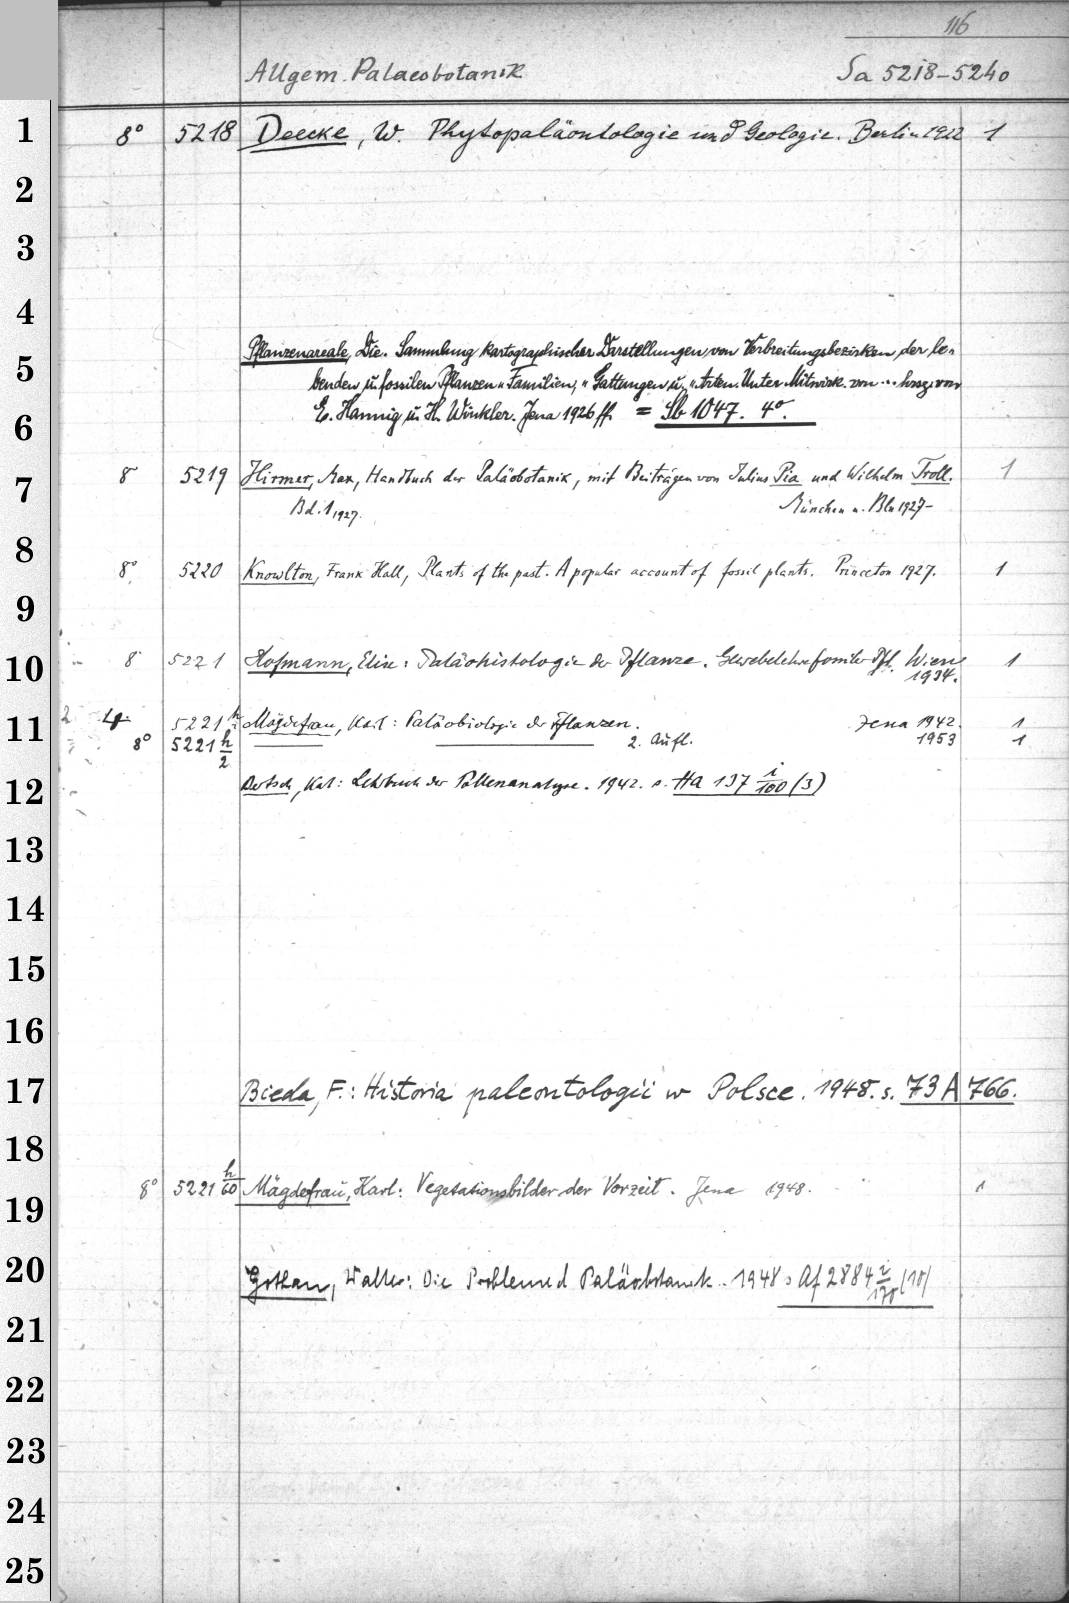 116
Allgem. Palaeobotanik Sa 5218–5240
1 8° 5218 Deecke, W. Phytopaläontologie und Geologie. Berlin 1922 1
2
3
4
Pflanzenareale, Die. Sammlung kartographischer Darstellungen von Verbreitungsbezirken der le-
5
benden u. fossilen Pflanzen-Familien, "Gattungen u. "Arten. Unter Mitwirk. von ... hrsg. von
6 E. Hannig u. H. Winkler. Jena 1926 ff. = Sb 1047. 4°.
7 8° 5219 Hirmer, Max, Handbuch der Paläobotanik, mit Beiträgen von Julius Pia und Wilhelm Troll. 1
Bd. 1 1927. München u. Bln 1927–
8 8° 5220 Knowlton, Frank Hall, Plants of the past. A popular account of fossil plants. Princeton 1927. 1
9
10 8° 5221 Hofmann, Elise: Paläohistologie der Pflanze. Gewebelehre fossiler Pfl. Wien 1
1934.
11 5221 h Mägdefrau, Karl: Paläobiologie der Pflanzen. Jena 1942. 1
8° 5221 h/2 2. Aufl. 1953 1
12 Bertsch, Karl: Lehrbuch der Pollenanalyse. 1942. s. Ha 137 i/100 (3)
13
14
15
16
17 Bieda, F.: Historia paleontologii w Polsce. 1948. s. 73 A 766.
18
19 8° 5221 h/60 Mägdefrau, Karl: Vegetationsbilder der Vorzeit. Jena 1948. 1
20 Gothan, Walter: Die Probleme d Paläobotanik. 1948 s Af 2884 r/170 (10)
21
22
23
24
25